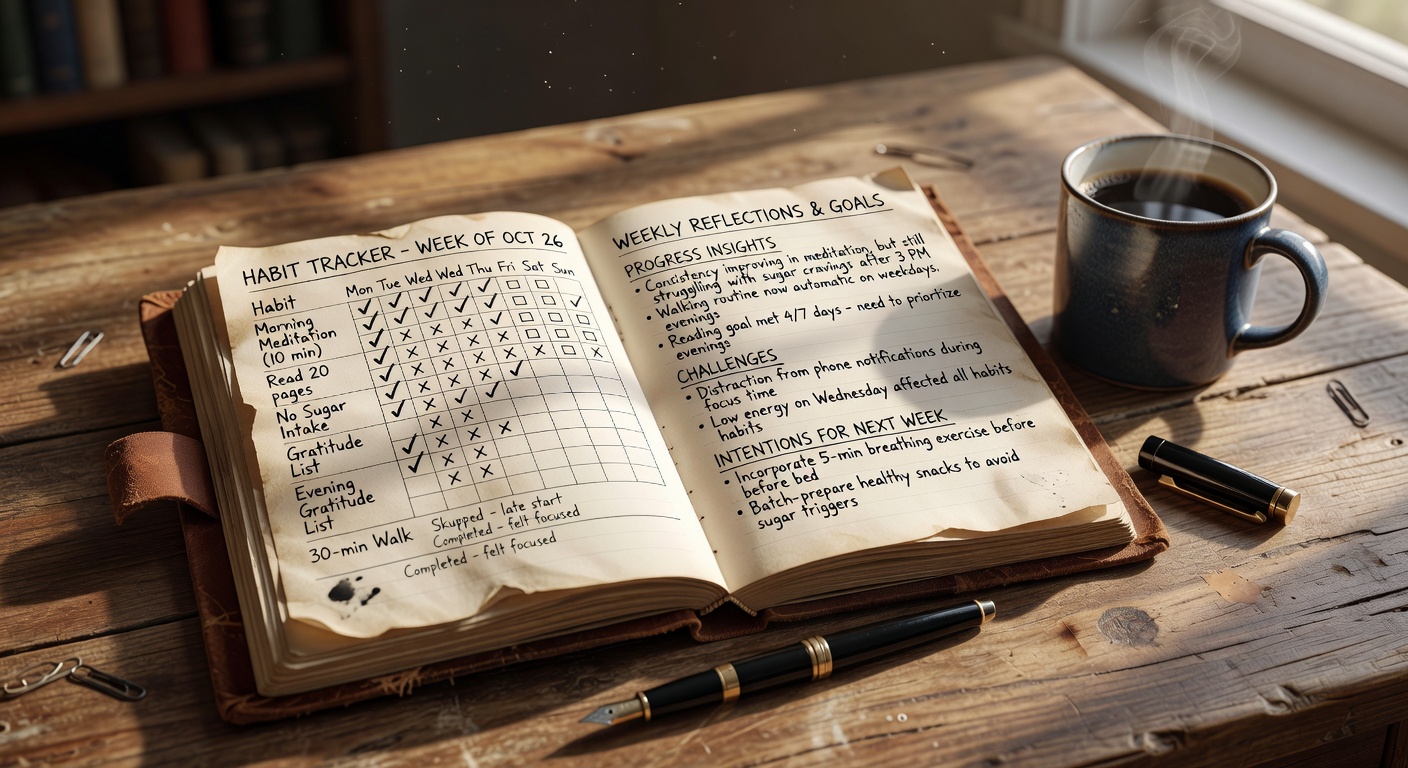 HABIT TRACKER – WEEK OF OCT 26
Habit Mon Tue Wed Wed Thu Fri Sat Sun
Morning
Meditation
(10 min)
Read 20
pages
No Sugar
Intake
Gratitude
List
Evening
Gratitude
List
30-min Walk
Skupped – late start
Completed – felt focused
Completed – felt focused
WEEKLY REFLECTIONS & GOALS
PROGRESS INSIGHTS
• Concistency improving in meditation, but still
struggling with sugar cravings after 3 PM
• Walking routine now automatic on weekdays.
evenings
• Reading goal met 4/7 days – need to prioritize
evenings
CHALLENGES
• Distraction from phone notifications during
focus time
• Low energy on Wednesday affected all habits
habits
INTENTIONS FOR NEXT WEEK
• Incorporate 5-min breathing exercise before
before bed
• Batch-prepare healthy snacks to avoid
sugar triggers